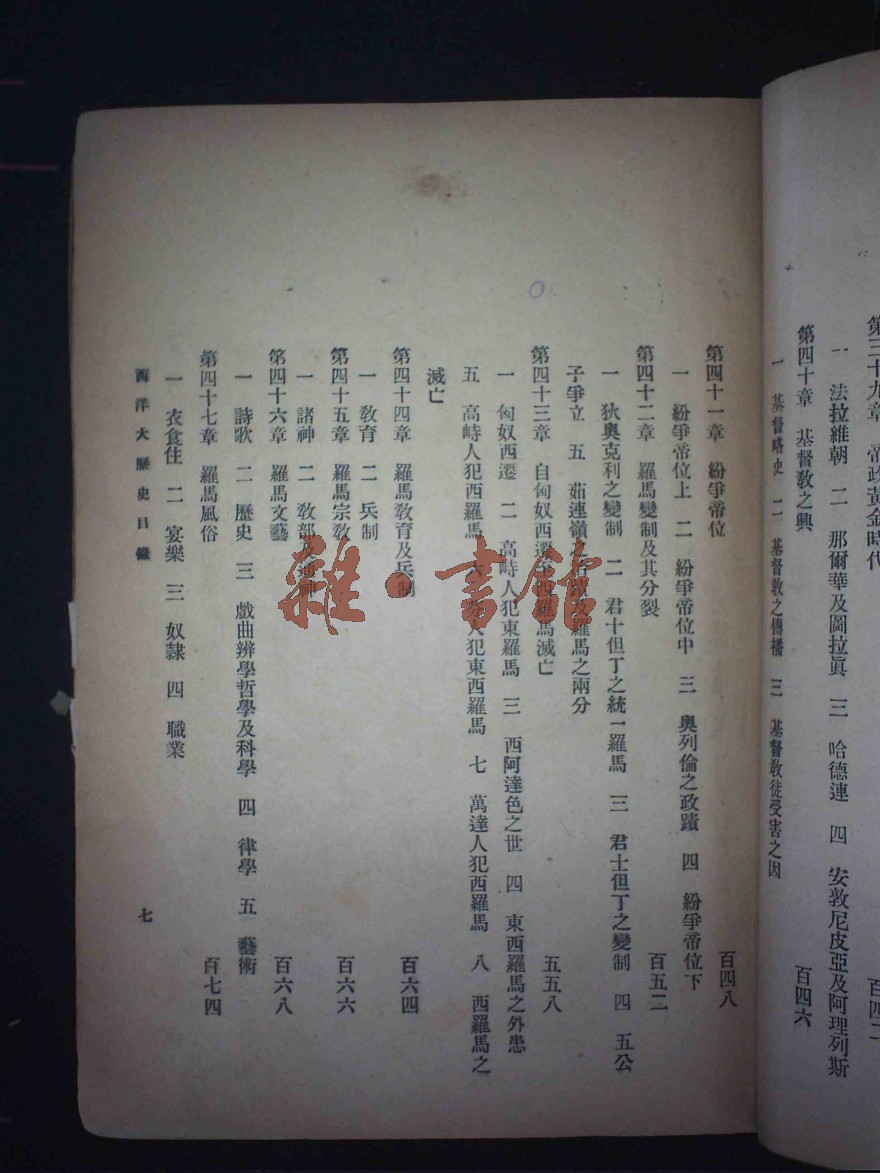 第三十九章 帝政黃金時代 百四二
一 法拉維朝 二 那爾華及圖拉眞 三 哈德連 四 安敦尼皮亞及阿理列斯
第四十章 基督敎之興 百四六
一 基督略史 二 基督敎之傳播 三 基督敎徒受害之因
第四十一章 紛爭帝位 百四八
一 紛爭帝位上 二 紛爭帝位中 三 奧列倫之政蹟 四 紛爭帝位下
第四十二章 羅馬變制及其分裂 百五二
一 狄奧克利之變制 二 君士但丁之統一羅馬 三 君士但丁之變制 四 五公
子爭立 五 茹連嶺之治蹟及羅馬之兩分
第四十三章 自匈奴西遷至西羅馬滅亡 五五八
一 匈奴西遷 二 高峙人犯東羅馬 三 西阿達色之世 四 東西羅馬之外患
五 高峙人犯西羅馬 六 匈人犯東西羅馬 七 萬達人犯西羅馬 八 西羅馬之
滅亡
第四十四章 羅馬敎育及兵制 百六四
一 敎育 二 兵制
第四十五章 羅馬宗敎 百六六
一 諸神 二 敎部及通神
第四十六章 羅馬文藝 百六八
一 詩歌 二 歷史 三 戲曲辨學哲學及科學 四 律學 五 藝術
第四十七章 羅馬風俗 百七四
一 衣食住 二 宴樂 三 奴隸 四 職業
西洋大歷史目錄 七
雜·書館